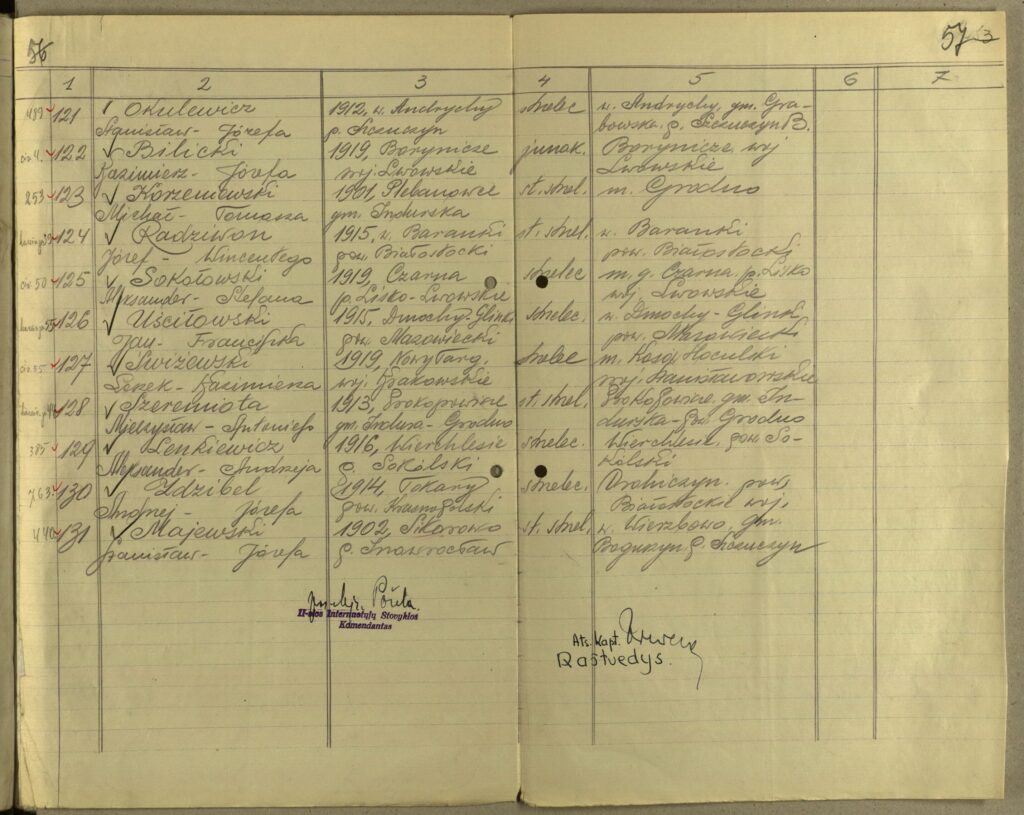 56
57 3
1 2 3 4 5 6 7
489 121 Okulewicz 1912, w. Andrychy strzelec w. Andrychy, gm. Gra-
Stanisław - Józefa p. Szczuczyn bowska p. Szczuczyn B.
122 Bilicki 1919, Borynicze junak. Borynicze woj
Kazimierz - Józefa woj. Lwowskie Lwowskie
253 123 Korzeniewski 1901, Plebanowce st. strzel. m. Grodno
Michał - Tomasza gm. Indurska
124 Radziwon 1915, w. Baranki st. strzel. w. Baranki
Józef - Wincentego pow. Białostocki pow. Białostocki
50 125 Sokołowski 1919, Czarna strzelec m. g. Czarna p. Lisko
Aleksander - Stefana p. Lisko - Lwowskie woj. Lwowskie
126 Uściłowski 1915, Dmochy-Glinki strzelec. w. Dmochy - Glink
Jan - Franciszka pow. Mazowiecki pow. Mazowiecki
127 Świżewski 1919, Nowy Targ, strzelec m. Kosów Huculski
Leszek - Kazimierza woj. Krakowskie woj. Stanisławowskie
128 Szeremiota 1913, Prokopowicze st. strzel. Prokopowicze, gm. In-
Mieczysław - Antoniego gm. Indura - Grodno durska - p. Grodno
385 129 Lenkiewicz 1916, Wierchlesie strzelec. Wierchlesie, pow. So-
Aleksander - Andrzeja p. Sokólski kólski
763 130 Idzibel 1914, Tokary strzelec. Drohiczyn. pow.
Andrzej - Józefa pow. Białostockie woj.
440 131 Majewski 1902, Sikorowo st. strzel. w. Wierzbowo, gm.
Stanisław - Józefa p. Inowrocław Boguszyn p. Szczuczyn
II-sios Internuotųjų Stovyklos
Komendantas
Ats. Kapt.
Raštvedys.